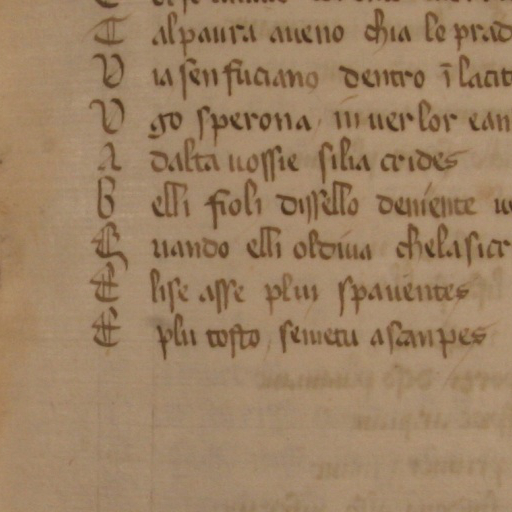 T al paura aueno chia le prad
V ia sen fuciano dentro ĩ lacit
V go sperona in uer lor ean
A dalta uossie silia crides
B elli fioli dissello deniente
Q uando elli oldiua chelasicr
E lise asse plui spauentes
E plu tosto seuietu ascanpes